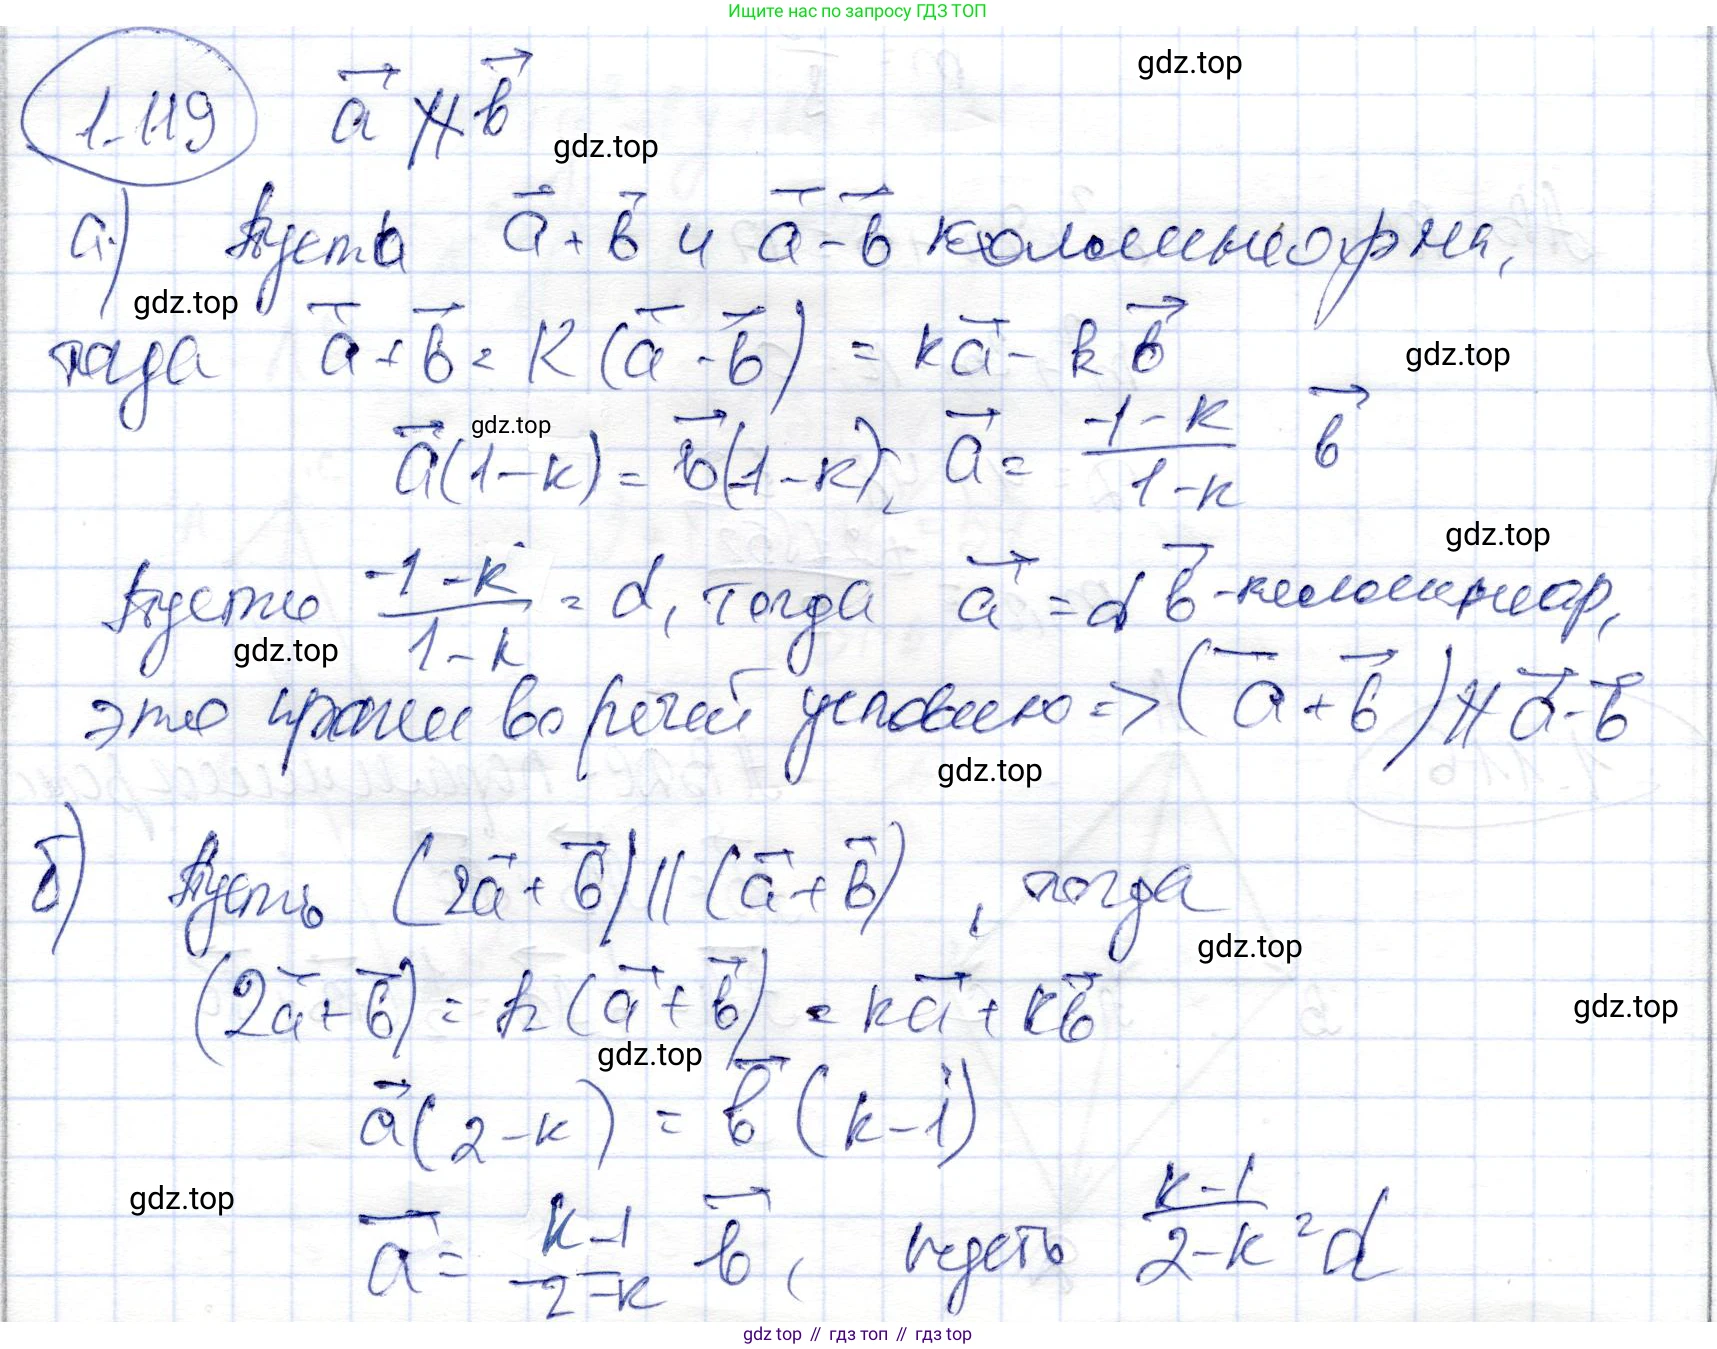 Ищите нас по запросу ГДЗ ТОП
gdz.top
1.119 a⃗ ∦ b⃗
gdz.top
а) Пусть a⃗ + b⃗ и a⃗ - b⃗ коллинеарны,
gdz.top
тогда a⃗ + b⃗ = k (a⃗ - b⃗) = ka⃗ - k b⃗
gdz.top
gdz.top
a⃗(1-k) = b⃗(-1-k), a⃗ = \frac{-1-k}{1-k} b⃗
gdz.top
Пусть \frac{-1-k}{1-k} = α, тогда a⃗ = α b⃗ - коллинеар,
gdz.top
это противоречит условию => (a⃗ + b⃗) ∦ a⃗ - b⃗
gdz.top
б) Пусть (2a⃗ + b⃗) || (a⃗ + b⃗), тогда
gdz.top
(2a⃗ + b⃗) = k (a⃗ + b⃗) = ka⃗ + kb⃗
gdz.top
gdz.top
a⃗(2-k) = b⃗ (k-1)
gdz.top
a⃗ = \frac{k-1}{2-k} b⃗, пусть \frac{k-1}{2-k} = α
gdz top // гдз топ // гдз top